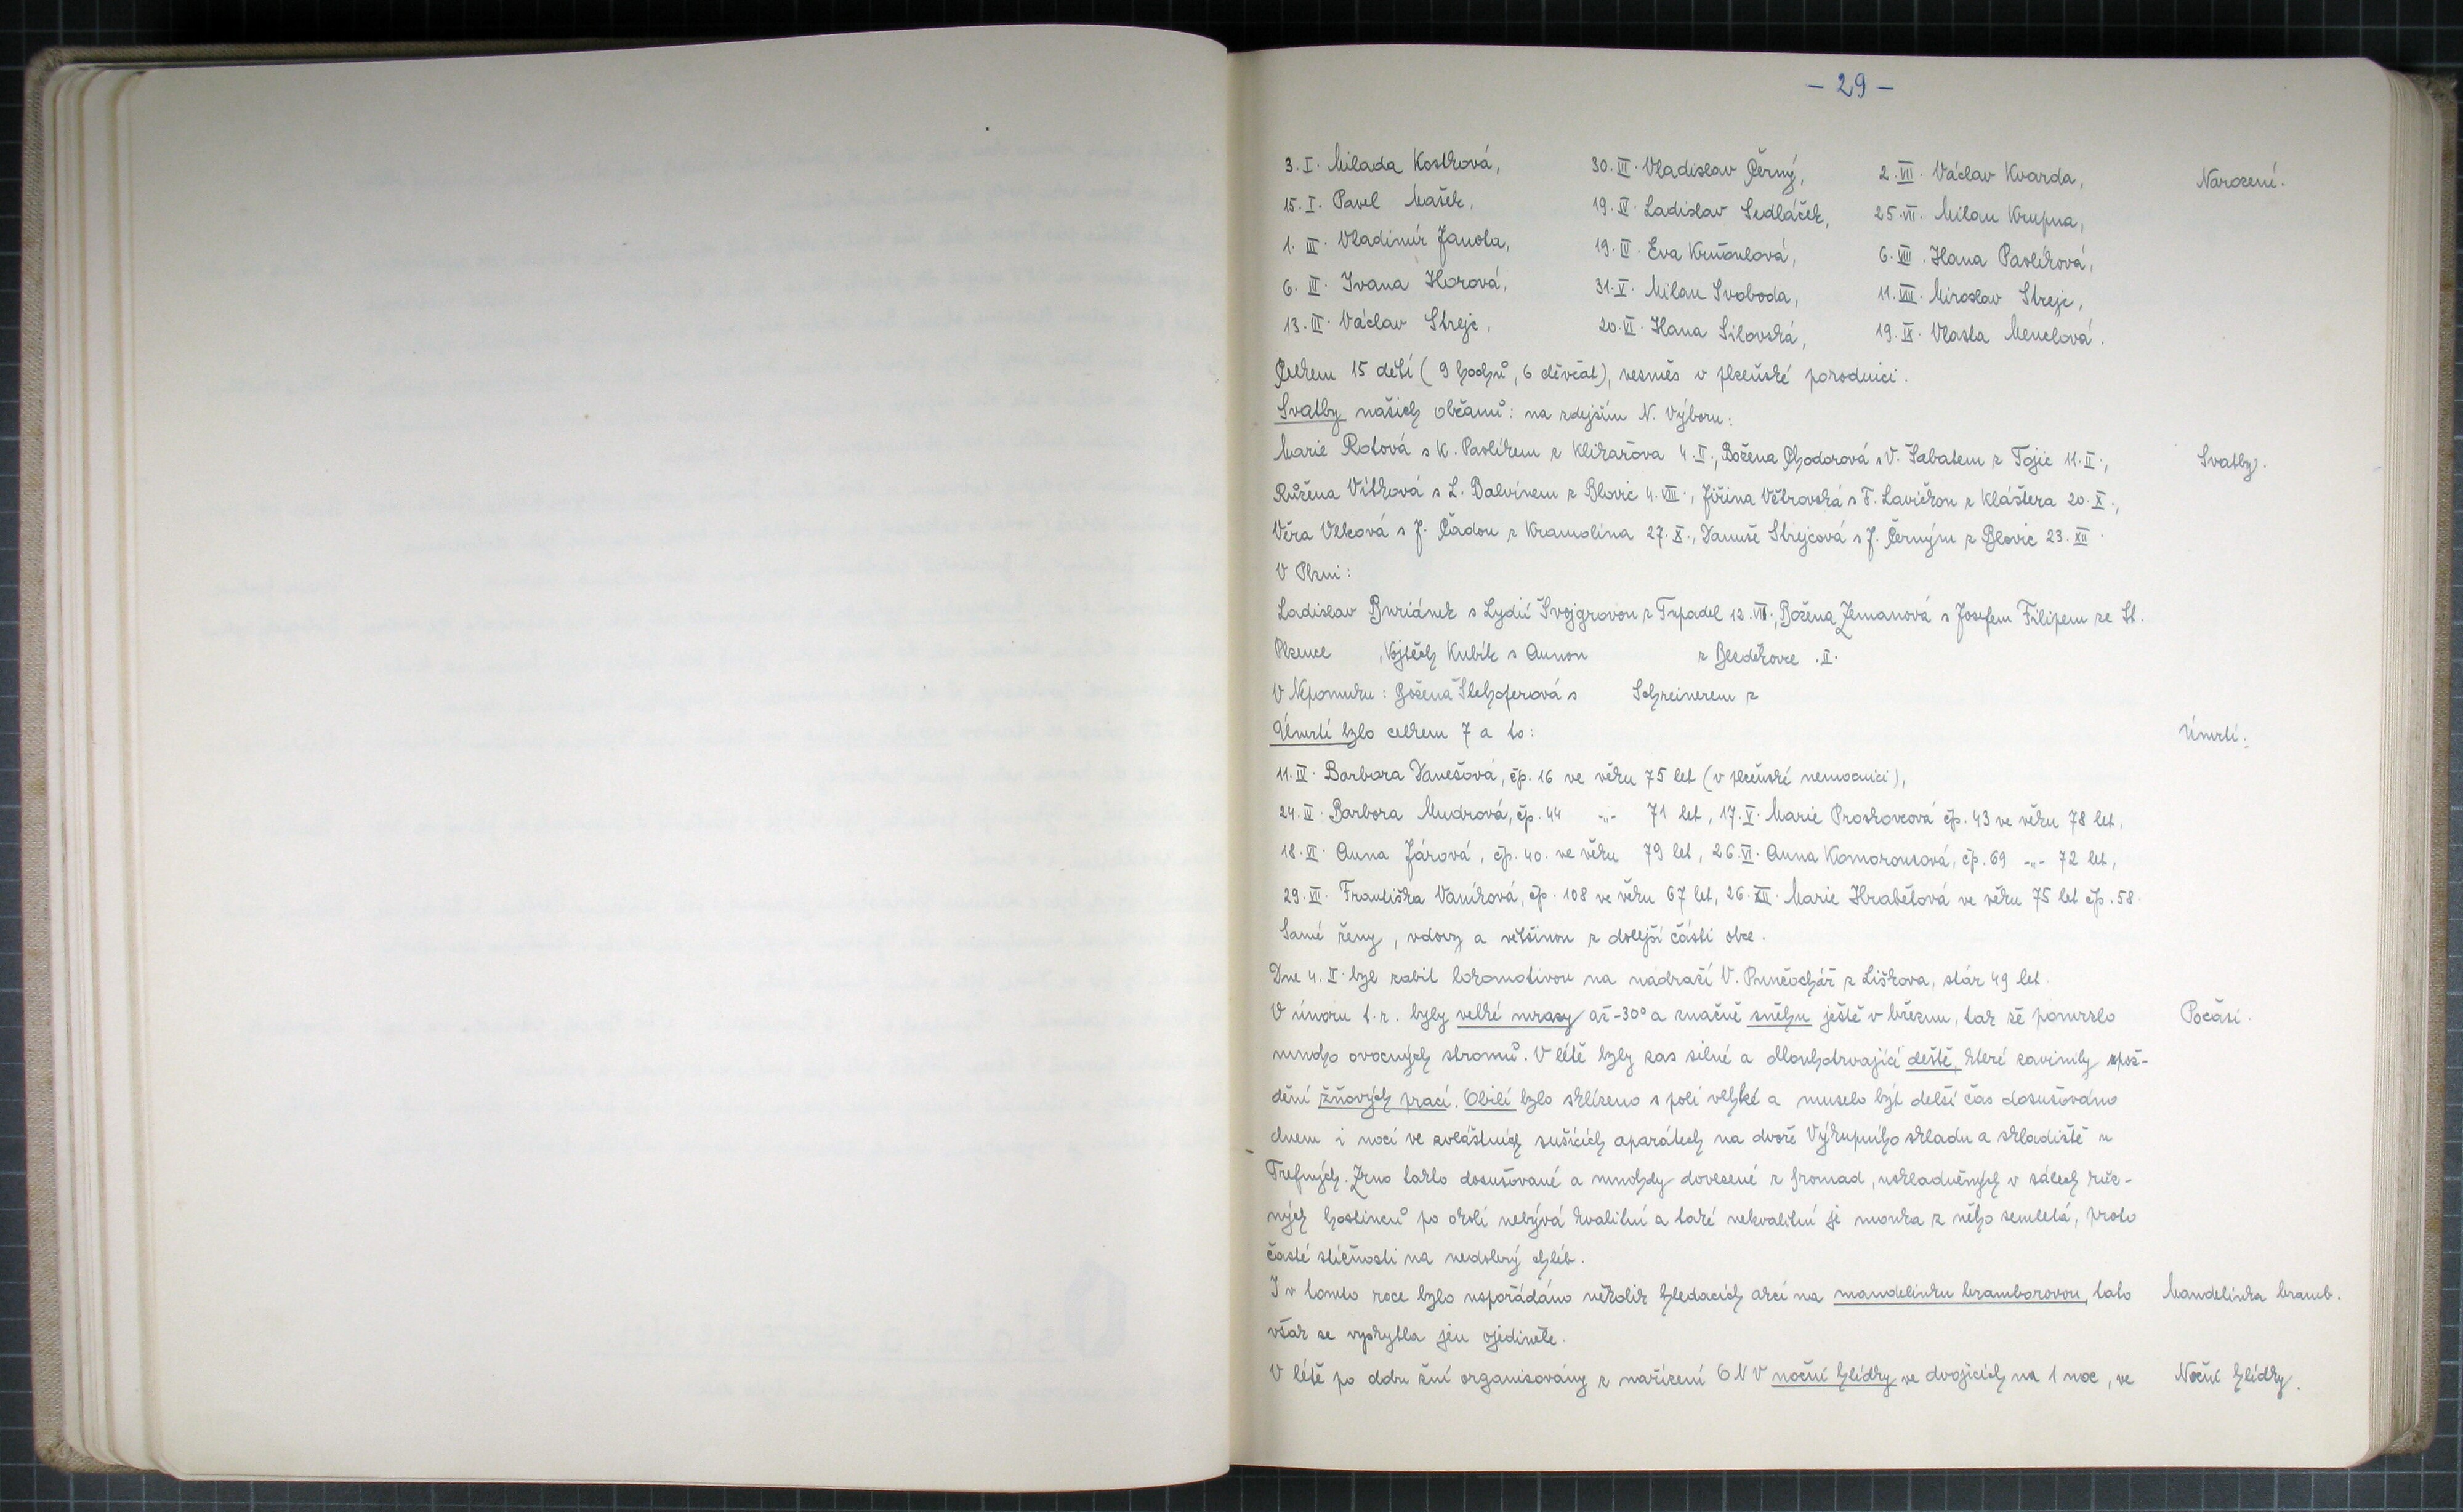 - 29 -
3. I. Milada Kostková, 30. III. Vladislav Černý, 2. VII. Václav Kvarda, Narození.
15. I. Pavel Mašek, 19. IV. Ladislav Sedláček, 25. VII. Milan Krupna,
1. III. Vladimír Janota, 19. IV. Eva 6. VIII. Hana Pavlíková,
6. III. Ivana Horová, 31. V. Milan Svoboda, 11. VIII. Miroslav Strejc,
13. III. Václav Strejc, 20. VI. Hana Silovská, 19. IX. Vlasta Menclová.
Celkem 15 dětí (9 hochů, 6 děvčat), vesměs v plzeňské porodnici.
Svatby našich občanů: na zdejším N. Výboru:
Marie Rotová s K. Pavlíkem z Klikařova 4. II., Božena Chodorová s V. Šabatem z Tojic 11. II., Svatby.
Růžena Vítková s L. Balvínem z Blovic 4. VIII., Jiřina Větrovská s F. Lavičkou z Kláštera 20. X.,
Věra Vlková s J. Čadou z Kramolína 27. X., Danuše Strejcová s J. Černým z Blovic 23. XII.
V Plzni:
Ladislav Buriánek s Lydií Švojgrovou z Trpadel 12. VII., Božena Zemanová s Josefem Filipem ze St.
Plzence , Vojtěch Kubík s Annou z Bzedekovce . II.
V Nepomuku: Božena Šlehoferová s Schreinerem z
Úmrtí bylo celkem 7 a to: Úmrtí:
11. IV. Barbora Vanešová, čp. 16 ve věku 75 let (v plzeňské nemocnici),
24. IV. Barbora Mudrová, čp. 44 -„- 71 let, 17. V. Marie Proskovcová čp. 43 ve věku 78 let,
18. VI. Anna Járová, čp. 40. ve věku 79 let, 26. VI. Anna Komorousová, čp. 69 -„- 72 let,
29. VI. Františka Vaníková, čp. 108 ve věku 67 let, 26. XII. Marie Hrabětová ve věku 75 let čp. 58.
Samé ženy, vdovy a většinou z dolejší části obce.
Dne 4. II. byl zabit lokomotivou na nádraží V. Punčochář z Liškova, stár 49 let.
V únoru t. r. byly velké mrazy až -30° a značně sněhu ještě v březnu, tak že pomrzlo Počasí.
mnoho ovocných stromů. V létě byly zas silné a dlouhotrvající deště, které zavinily zpož-
dění žňových prací. Obilí bylo sklízeno s polí vlhké a muselo být delší čas dosušováno
dnem i nocí ve zvláštních sušících aparátech na dvoře Výkupního skladu a skladiště u
Trefných. Zrno takto dosušované a mnohdy dovezené z hromad, uskladněných v sálech růz-
ných hostinců po okolí nebývá kvalitní a také nekvalitní je mouka z něho semletá, proto
časté stížnosti na nedobrý chléb.
I v tomto roce bylo uspořádáno několik hledacích akcí na mandelinku bramborovou, tato Mandelinka bramb.
však se vyskytla jen ojediněle.
V létě po dobu žní organisovány z nařízení ONV noční hlídky ve dvojicích na 1 noc, ve Noční hlídky.